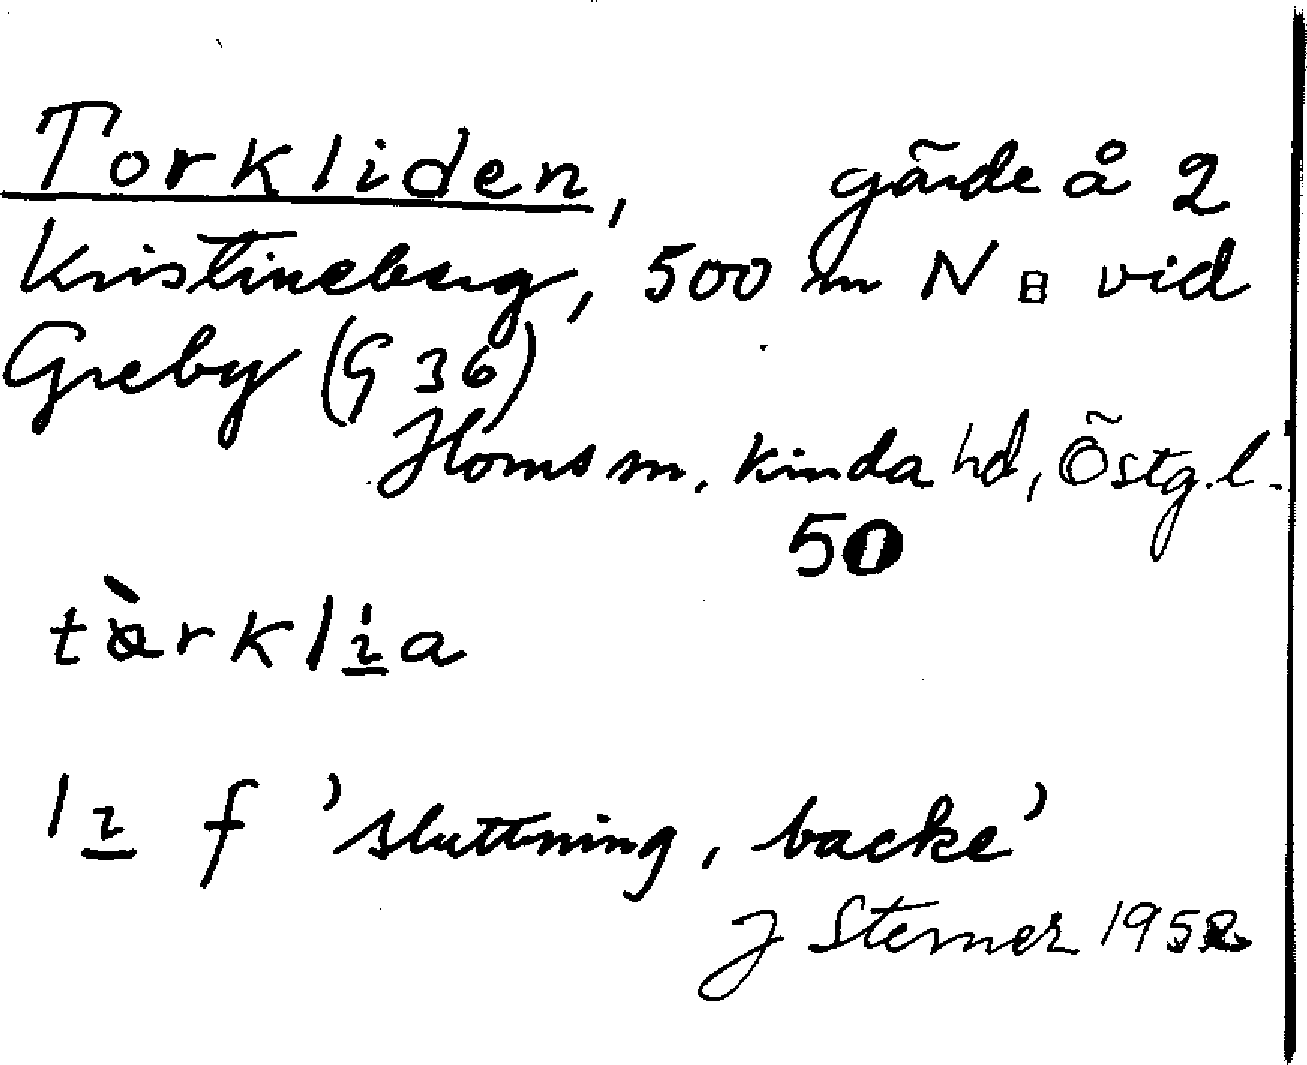 Torkliden, gärde å 2
Kristineberg, 500 m N vid
Greby (G 36)
Horns sn. Kinda hd, Östg.l.
50
tàrklia
li f 'sluttning, backe'
J Sterner 1952